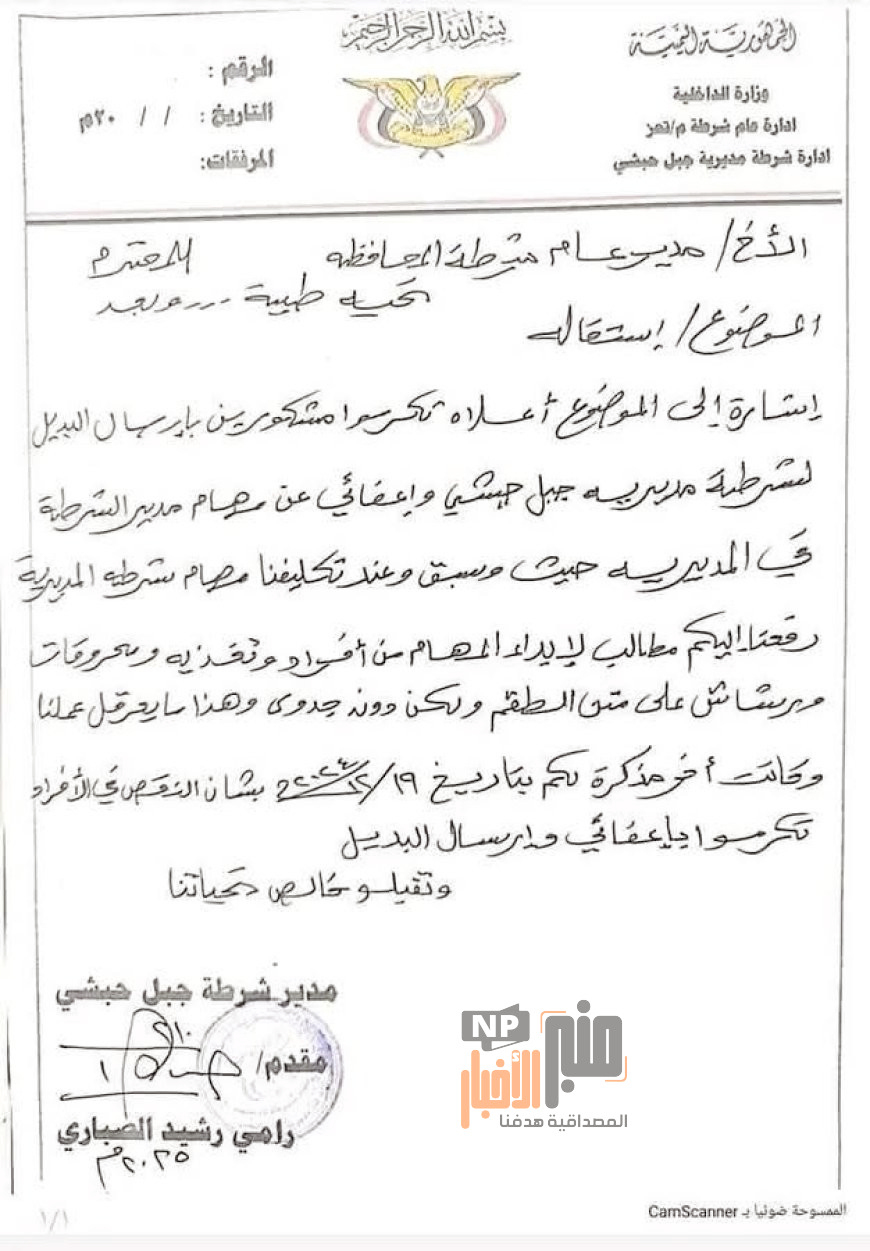 بسم الله الرحمن الرحيم
الجمهورية اليمنية
وزارة الداخلية
ادارة عام شرطة م/تعز
ادارة شرطة مديرية جبل حبشي
الرقم :
التاريخ : / / ٢٠م
المرفقات:
الأخ/ مديرعام شرطة المحافظه المحترم
تحيه طيبة ... وبعد
الموضوع/ إستقاله
إشارة إلى الموضوع أعلاه تكرموا مشكورين بإرسال البديل
لشرطة مديريه جبل حبشي وإعفائي عن مهام مدير الشرطة
في المديريه حيث وسبق وعند تكليفنا مهام شرطه المديرية
رفعنا إليكم مطالب لإيداء المهام من أفراد وتغذيه ومحروقات
ورشاش على متن الطقم ولكن دون جدوى وهذا ما يعرقل عملنا
وكانت أخر مذكرة لكم بتاريخ ١٩/١٢/٢٠٢٤م بشان النقص في الأفراد
تكرموا بإعفائي وإرسال البديل
وتقبلو خالص تحياتنا
مدير شرطة جبل حبشي
مقدم/
رامي رشيد الصباري
٢٠٢٥م
NP
منبر الأخبار
المصداقية هدفنا
الممسوحة ضوئيا بـ CamScanner
١/١